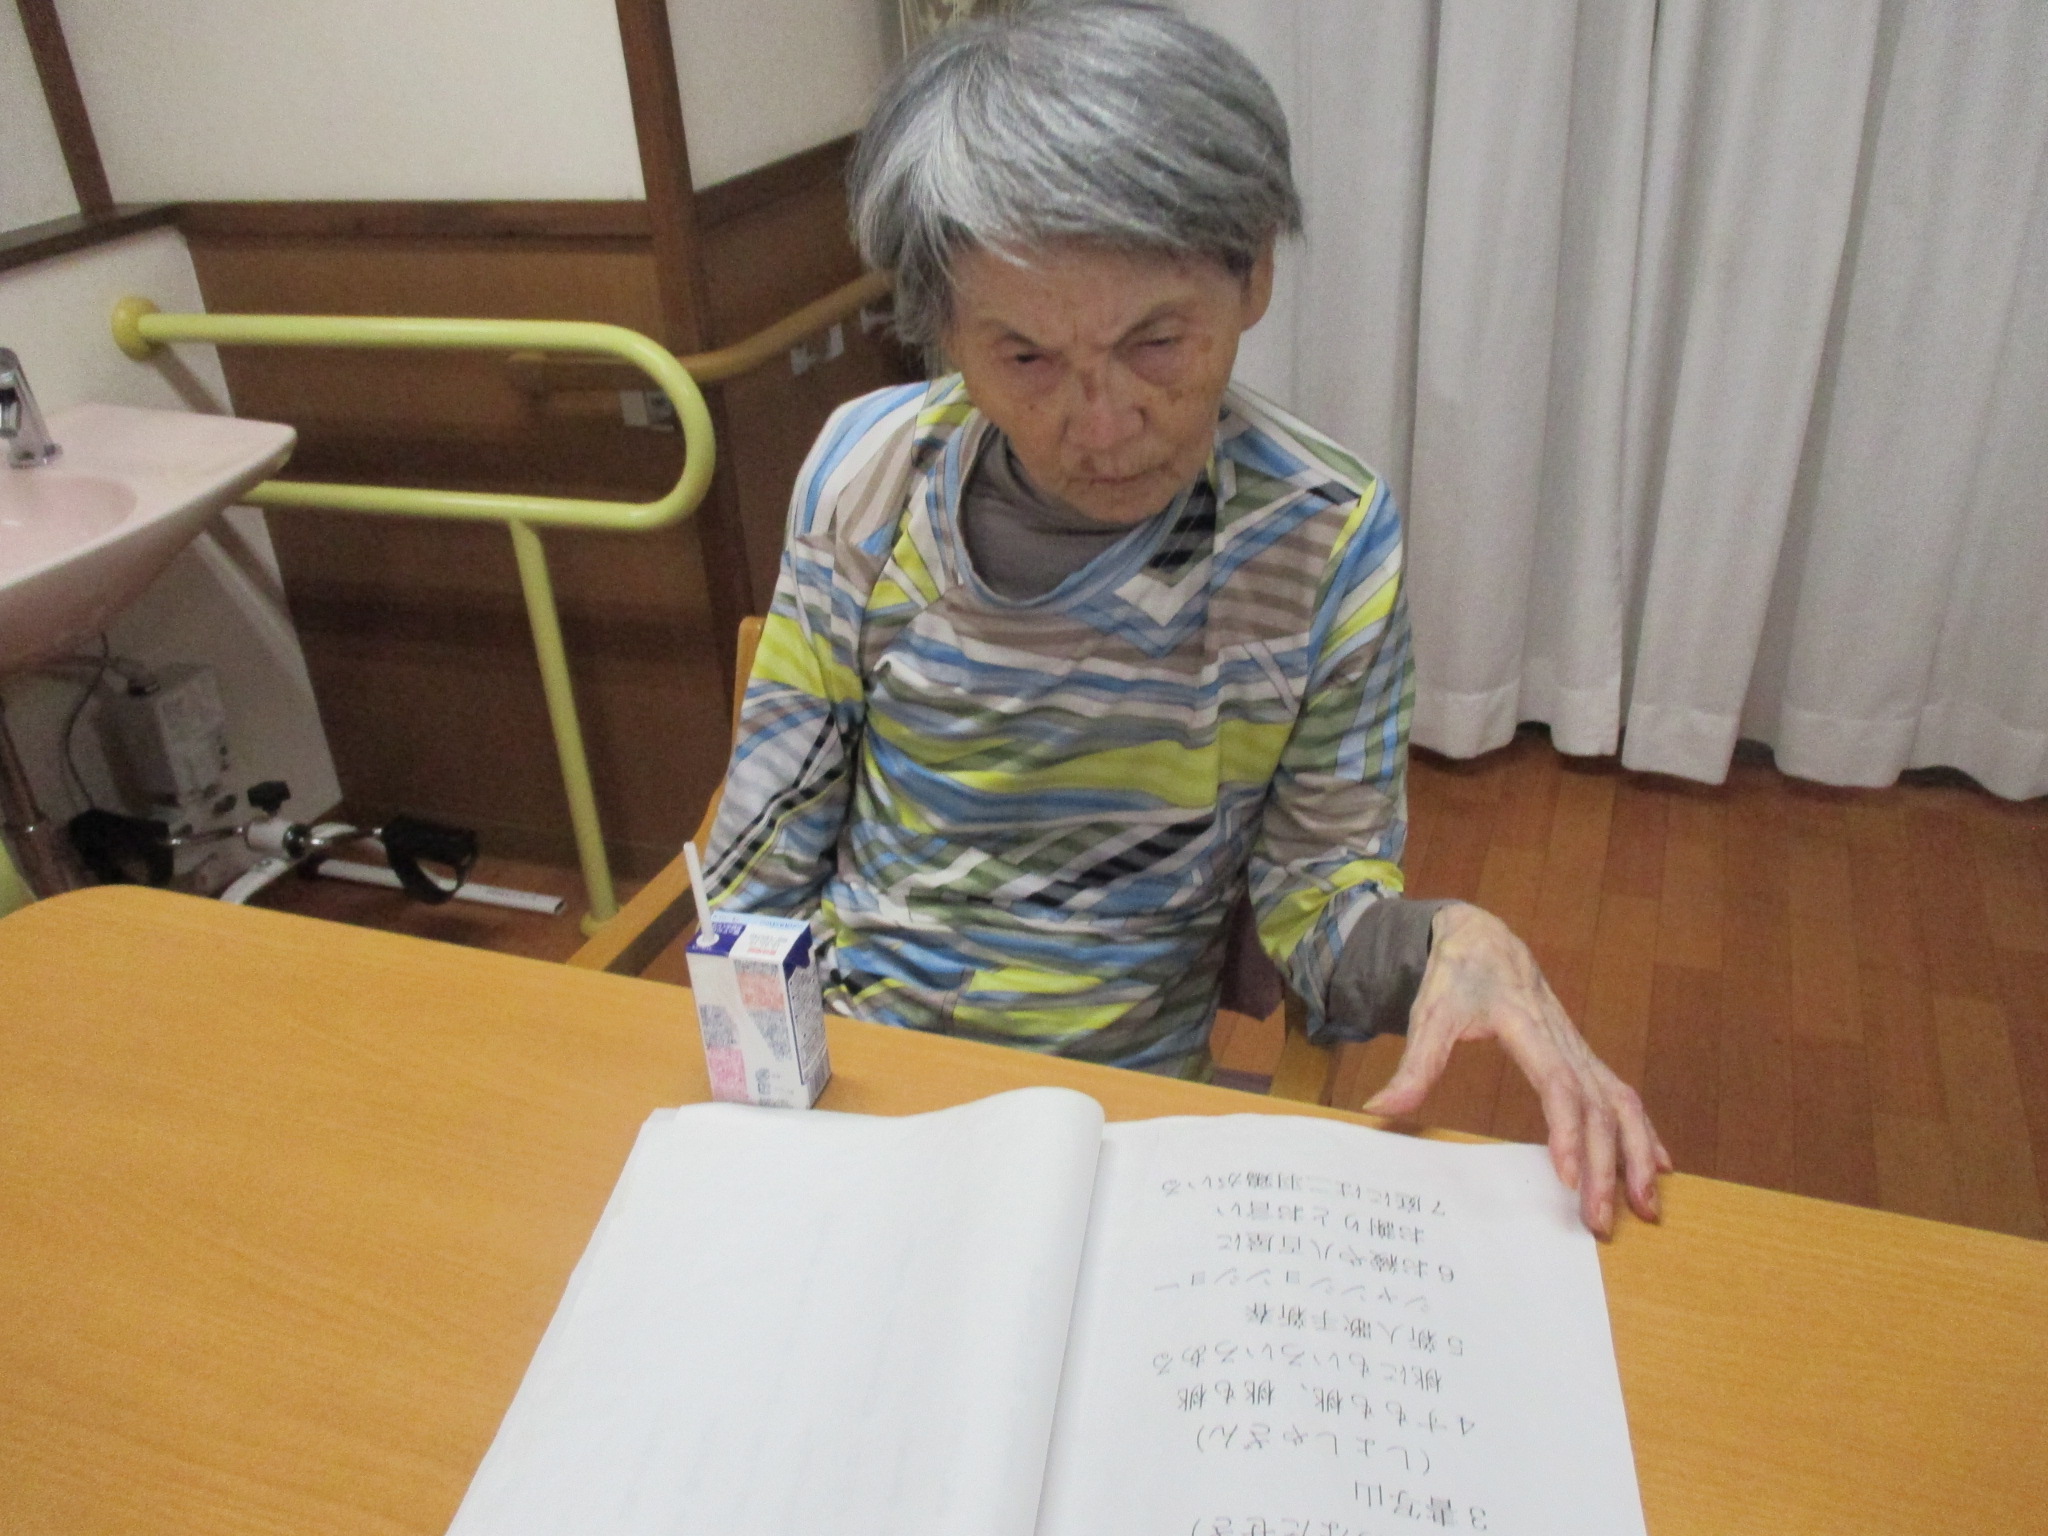 3書写山
(しょしゃざん)
4すもも桃、桃も桃
桃にもいろいろある
5新人歌手新春
シャンションショー
6お綾や八百屋に
お謝りとお言い
7庭には二羽鶏がいる